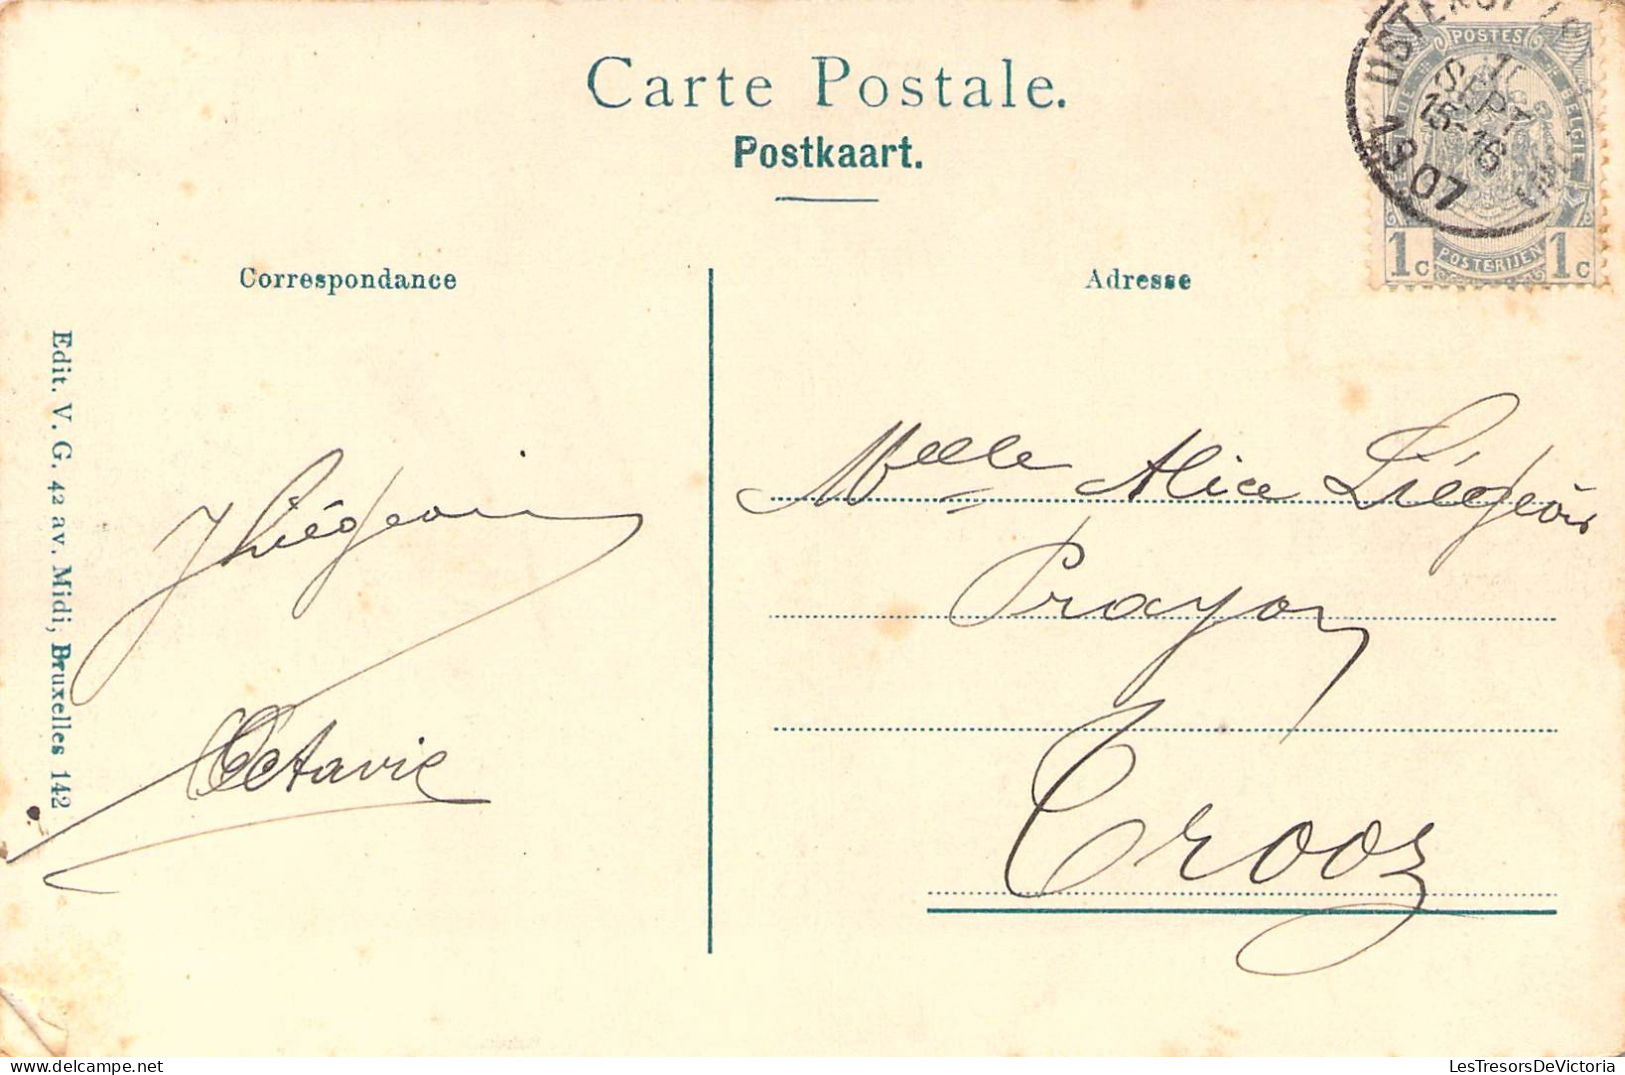 Carte Postale.
Postkaart.
Correspondance
Adresse
POSTES
BELGIE
1c POSTERIJEN 1c
SEPT
15-16
1907
Edit. V. G. 42 av. Midi, Bruxelles 142
J Liégeois
Octavie
Melle Alice Liégeois
Prayon
Trooz
LesTresorsDeVictoria